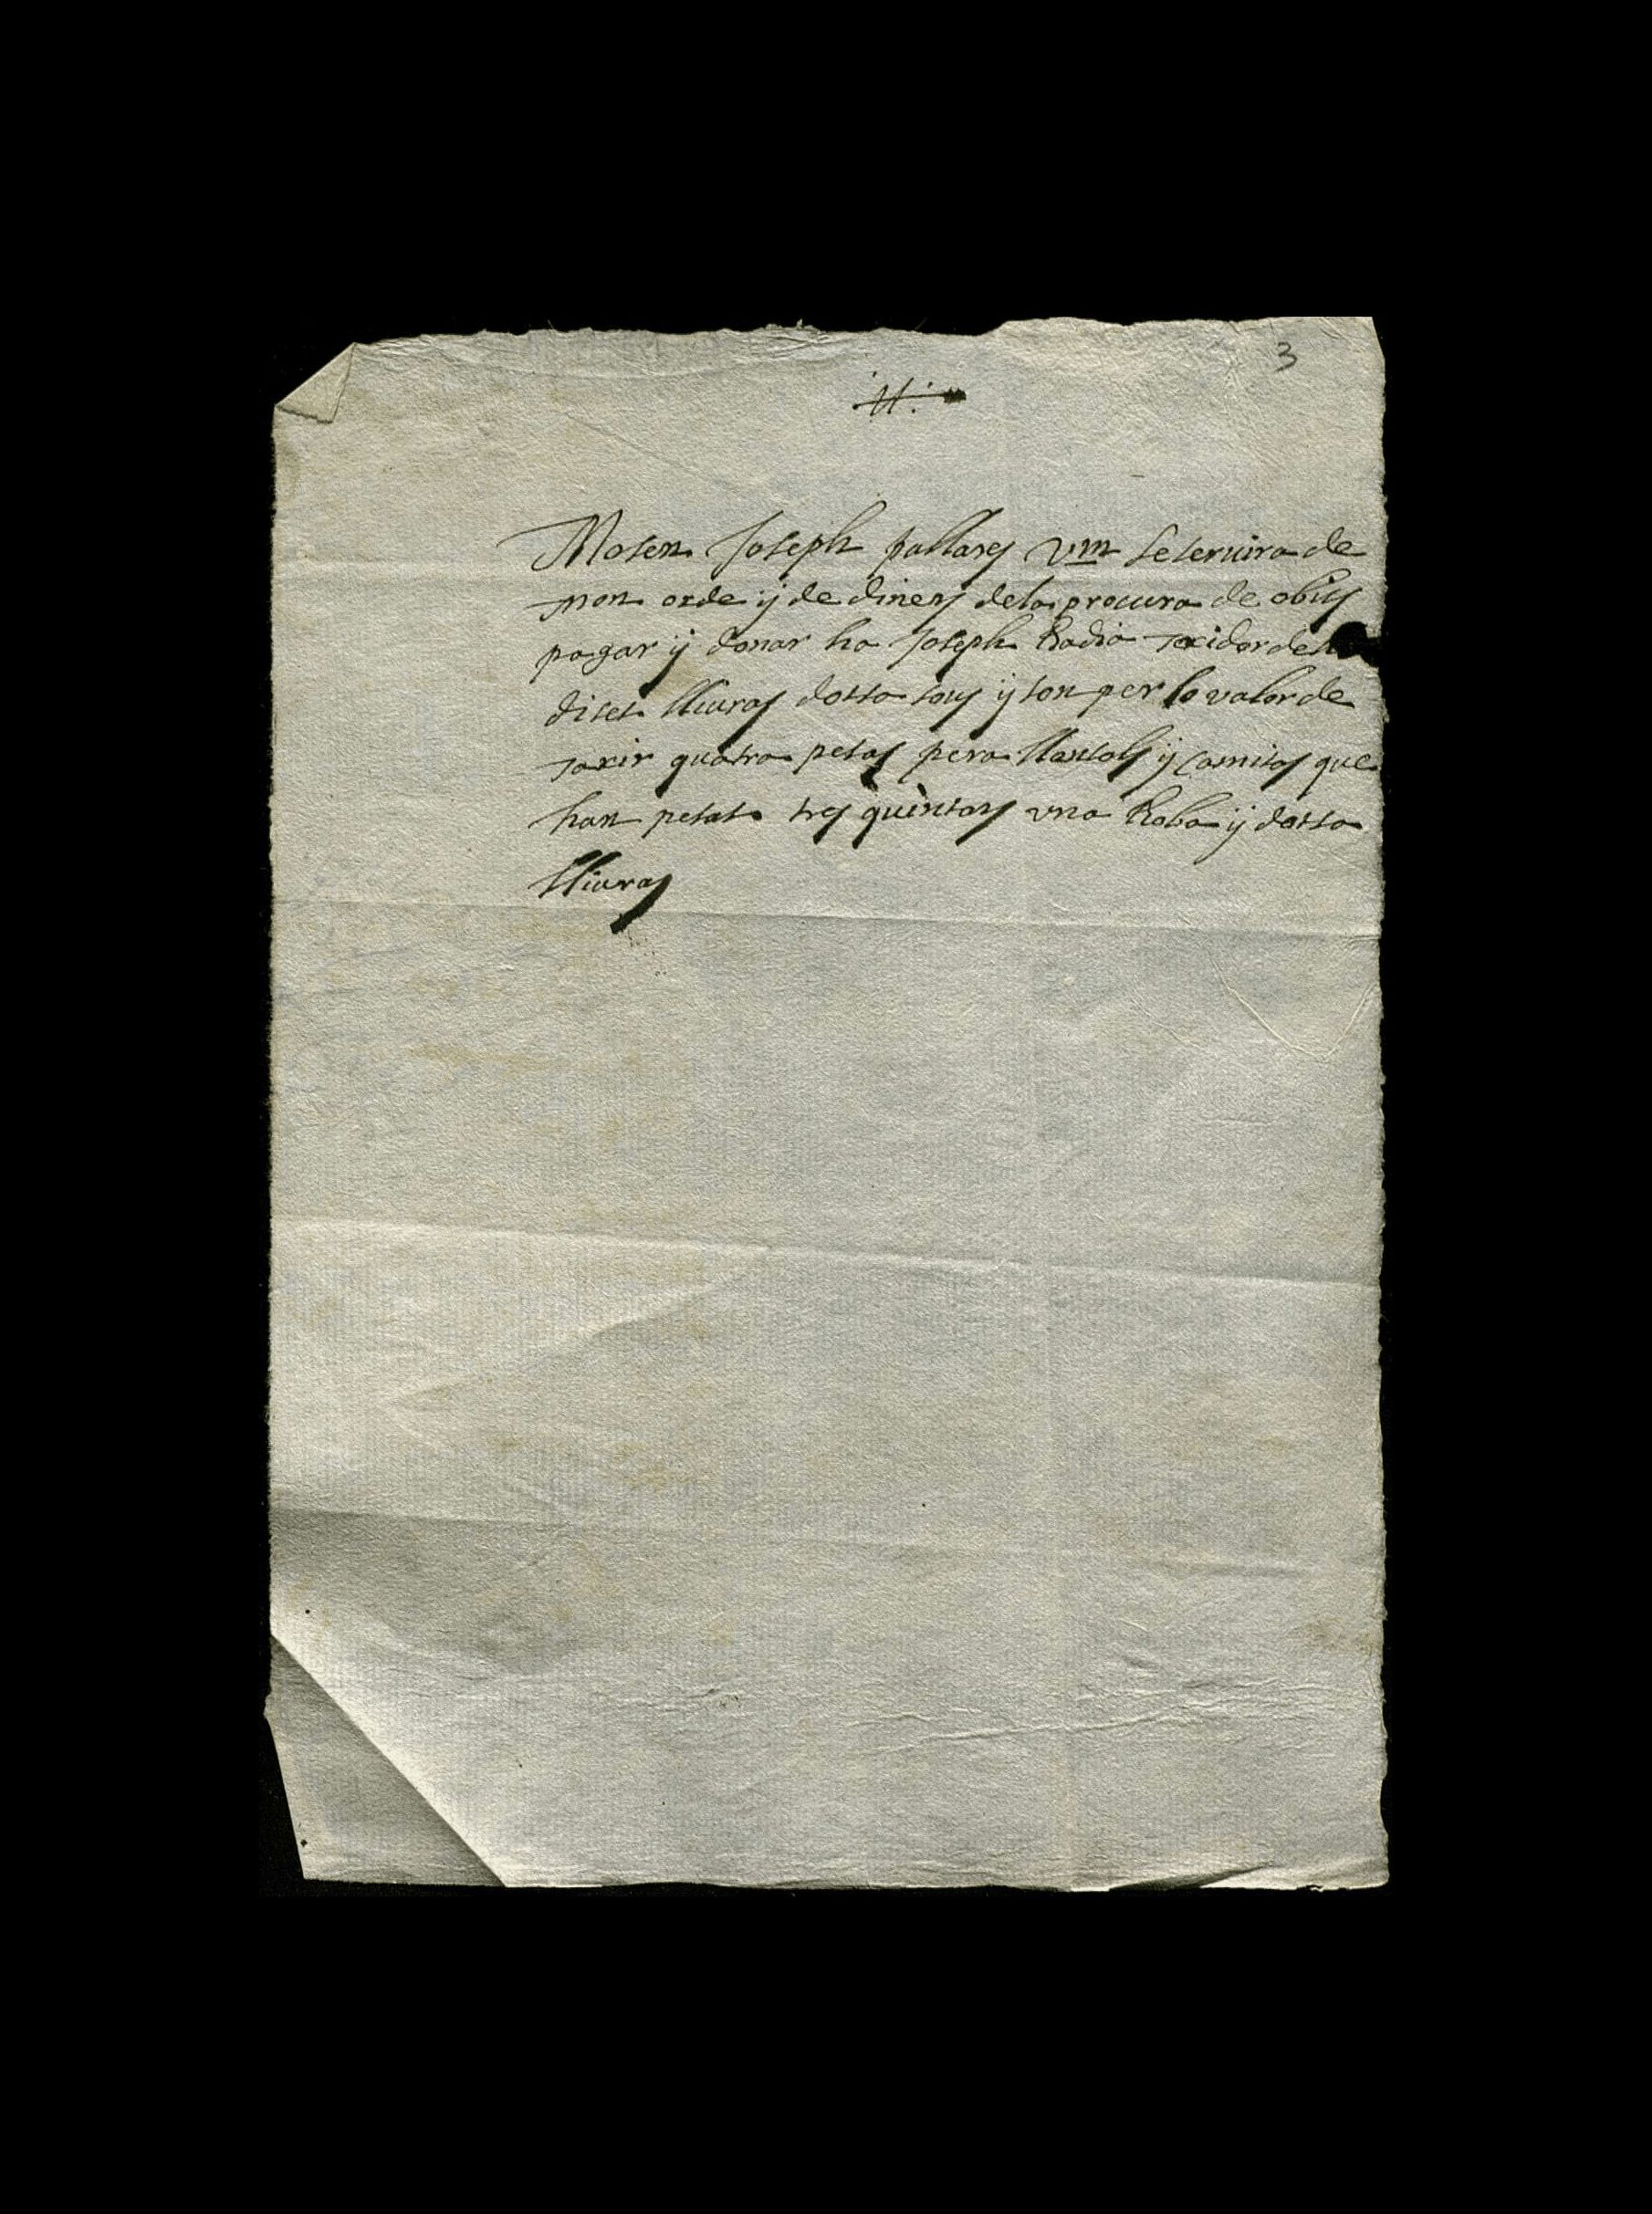 3
11
Mosen Joseph pallares vm se seruira de
mon orde ÿ de diners dela procura de obits
pagar ÿ donar ha Joseph Radia taxidor de
diset lliuras dotsa sous ÿ son per lo valor de
taxir quatra pesas pera llansols ÿ camisas que
han pesat tres quintars vna Roba ÿ dotsa
lliuras